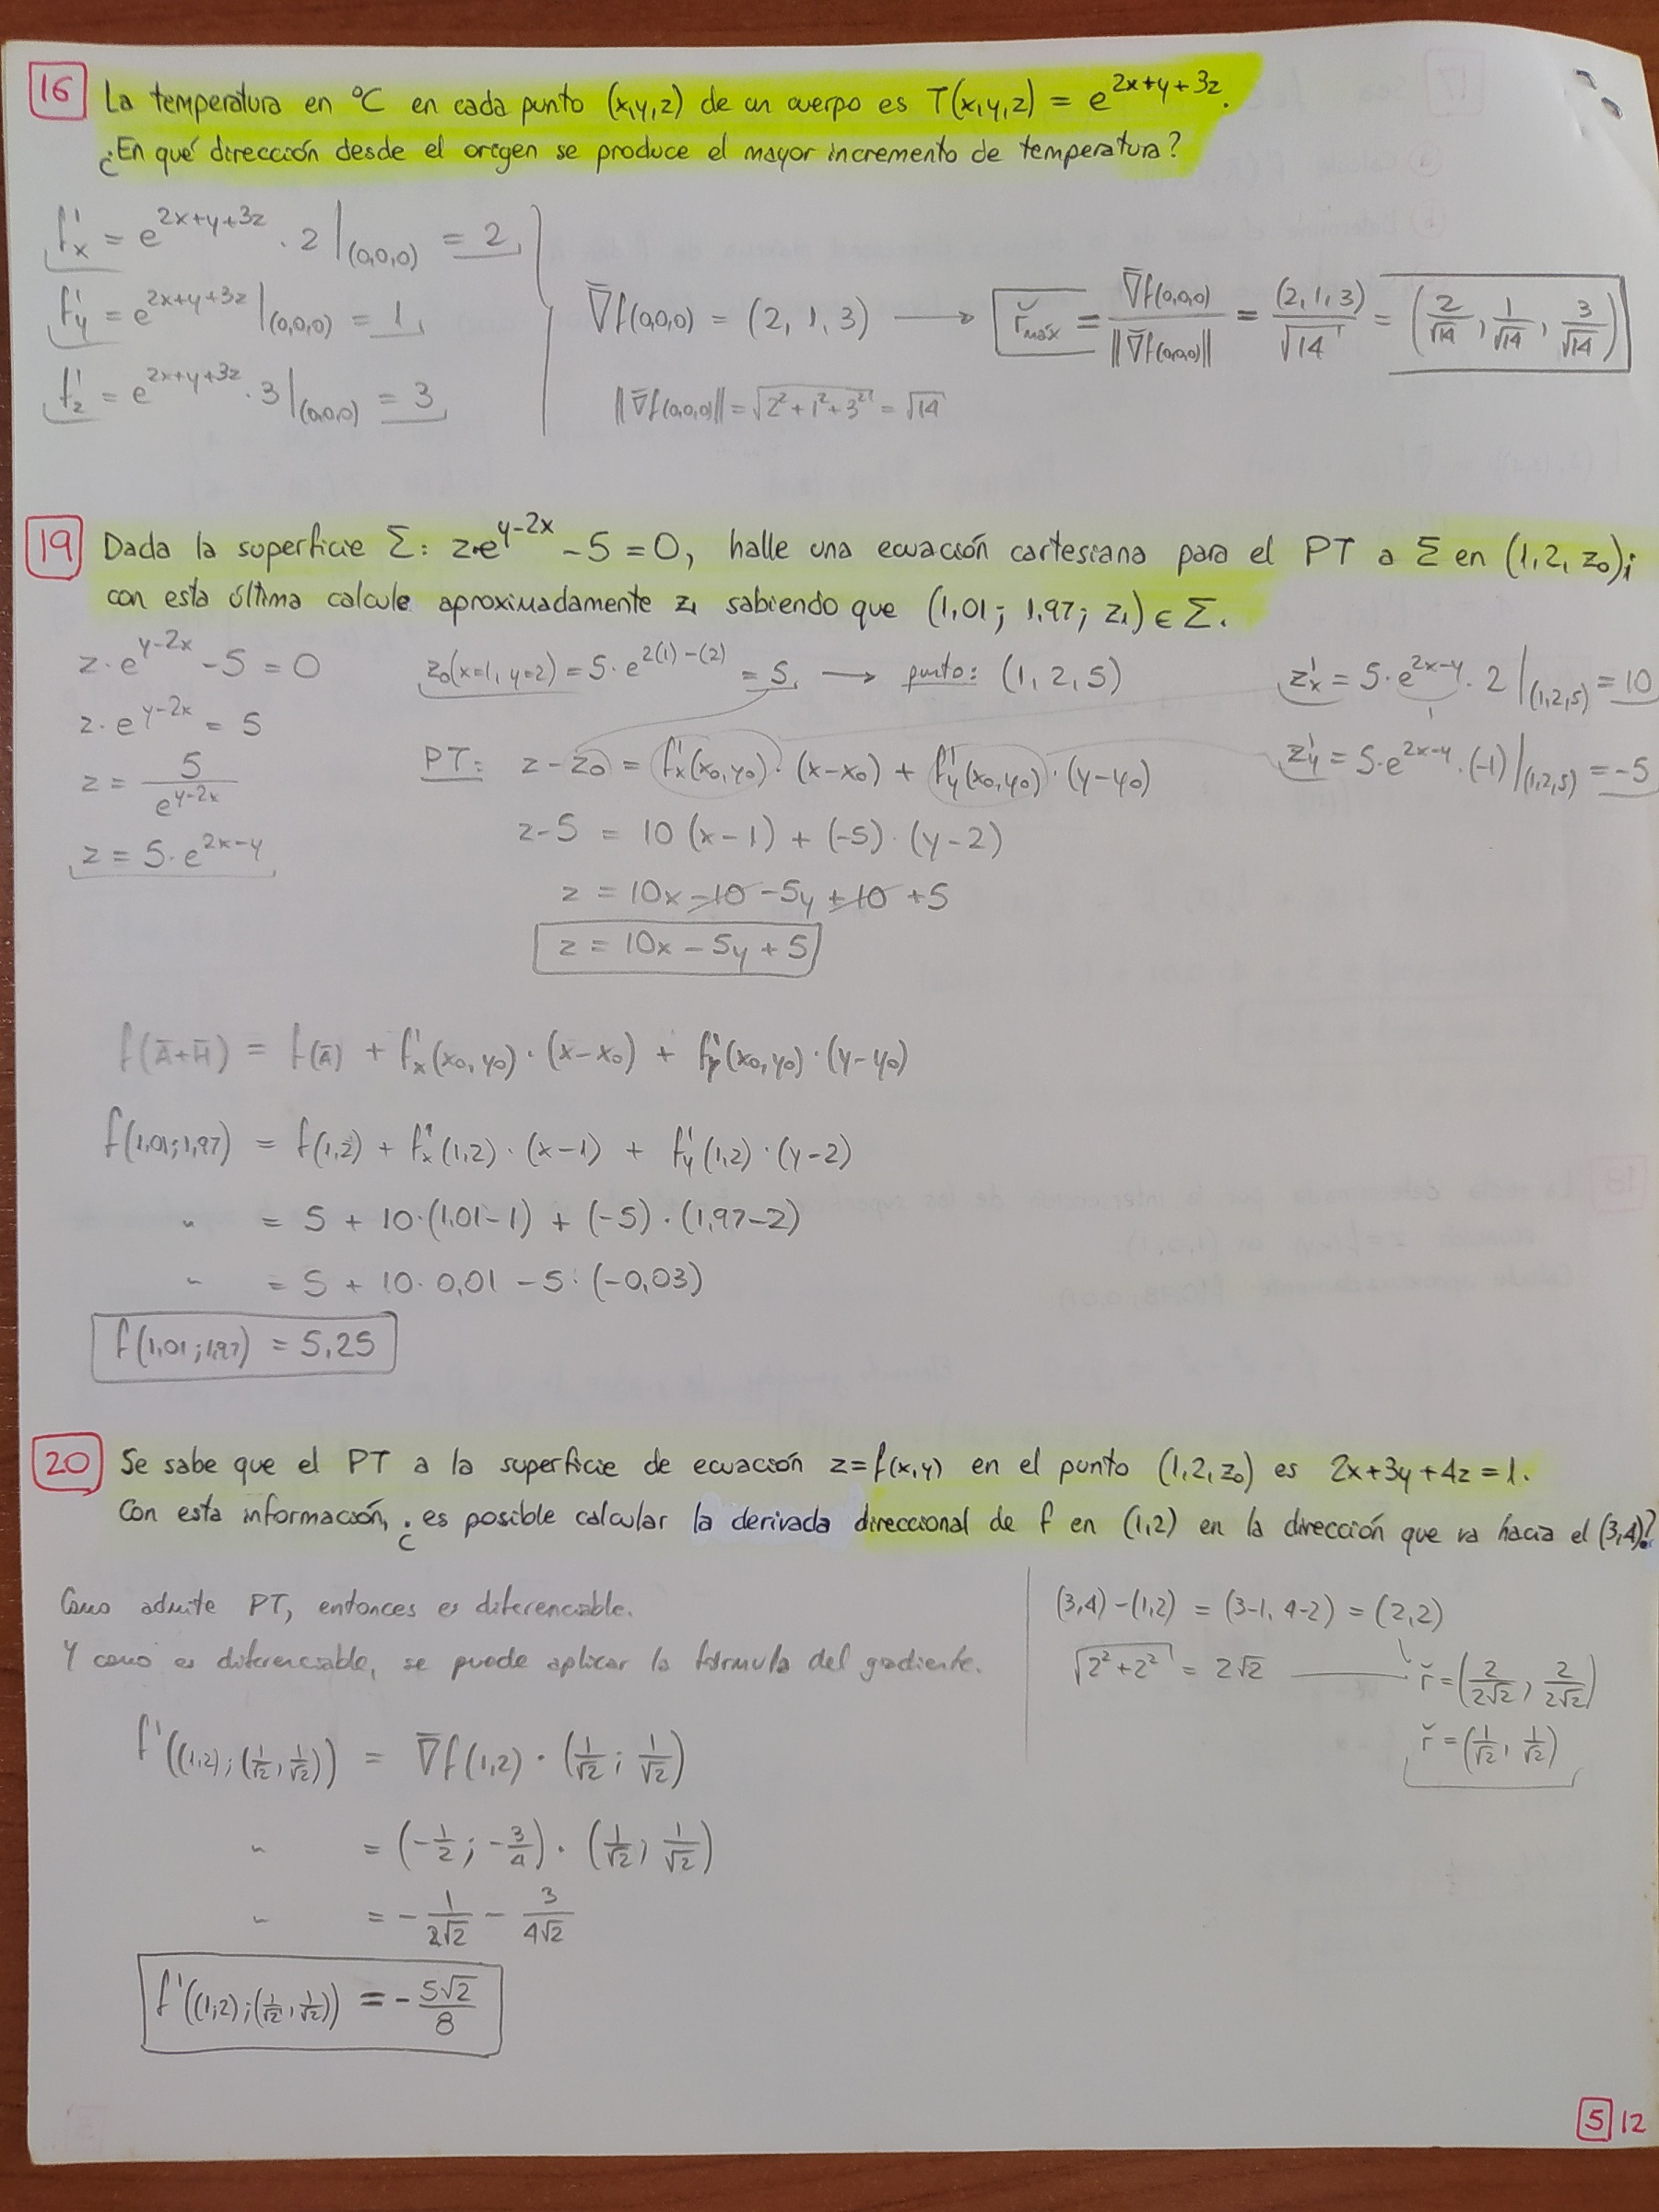 16 La temperatura en °C en cada punto (x,y,z) de un cuerpo es T(x,y,z) = e^{2x+y+3z}.
¿En qué dirección desde el origen se produce el mayor incremento de temperatura?
f'x = e^{2x+y+3z} · 2 |(0,0,0) = 2
f'y = e^{2x+y+3z} |(0,0,0) = 1
f'z = e^{2x+y+3z} · 3 |(0,0,0) = 3
∇̄f(0,0,0) = (2, 1, 3) → ř máx = ∇̄f(0,0,0) / ||∇̄f(0,0,0)|| = (2,1,3)/√14 = (2/√14, 1/√14, 3/√14)
||∇̄f(0,0,0)|| = √(2²+1²+3²) = √14
19 Dada la superficie Σ: z·e^{y-2x} - 5 = 0, halle una ecuación cartesiana para el PT a Σ en (1,2,z₀);
con esta última calcule aproximadamente z₁ sabiendo que (1,01; 1,97; z₁) ∈ Σ.
z·e^{y-2x} - 5 = 0
z·e^{y-2x} = 5
z = 5/e^{y-2x}
z = 5·e^{2x-y}
z₀(x=1, y=2) = 5·e^{2(1)-(2)} = 5 → punto: (1, 2, 5)
z'x = 5·e^{2x-y} · 2 |(1,2,5) = 10
1
z'y = 5·e^{2x-y} · (-1) |(1,2,5) = -5
PT: z - z₀ = f'x(x₀,y₀) · (x-x₀) + f'y(x₀,y₀) · (y-y₀)
z-5 = 10(x-1) + (-5)·(y-2)
z = 10x -10 -5y +10 +5
z = 10x - 5y + 5
f(Ā+H̄) = f(Ā) + f'x(x₀,y₀)·(x-x₀) + f'y(x₀,y₀)·(y-y₀)
f(1,01;1,97) = f(1,2) + f'x(1,2)·(x-1) + f'y(1,2)·(y-2)
" = 5 + 10·(1,01-1) + (-5)·(1,97-2)
" = 5 + 10·0,01 - 5·(-0,03)
f(1,01;1,97) = 5,25
20 Se sabe que el PT a la superficie de ecuación z=f(x,y) en el punto (1,2,z₀) es 2x+3y+4z=1.
Con esta información, ¿es posible calcular la derivada direccional de f en (1,2) en la dirección que va hacia el (3,4)?
Como admite PT, entonces es diferenciable.
Y como es diferenciable, se puede aplicar la fórmula del gradiente.
(3,4)-(1,2) = (3-1, 4-2) = (2,2)
√(2²+2²) = 2√2
ř = (2/2√2, 2/2√2)
ř = (1/√2, 1/√2)
f'((1,2);(1/√2,1/√2)) = ∇̄f(1,2) · (1/√2; 1/√2)
" = (-1/2; -3/4) · (1/√2, 1/√2)
" = -1/2√2 - 3/4√2
f'((1;2);(1/√2,1/√2)) = -5√2/8
5 12